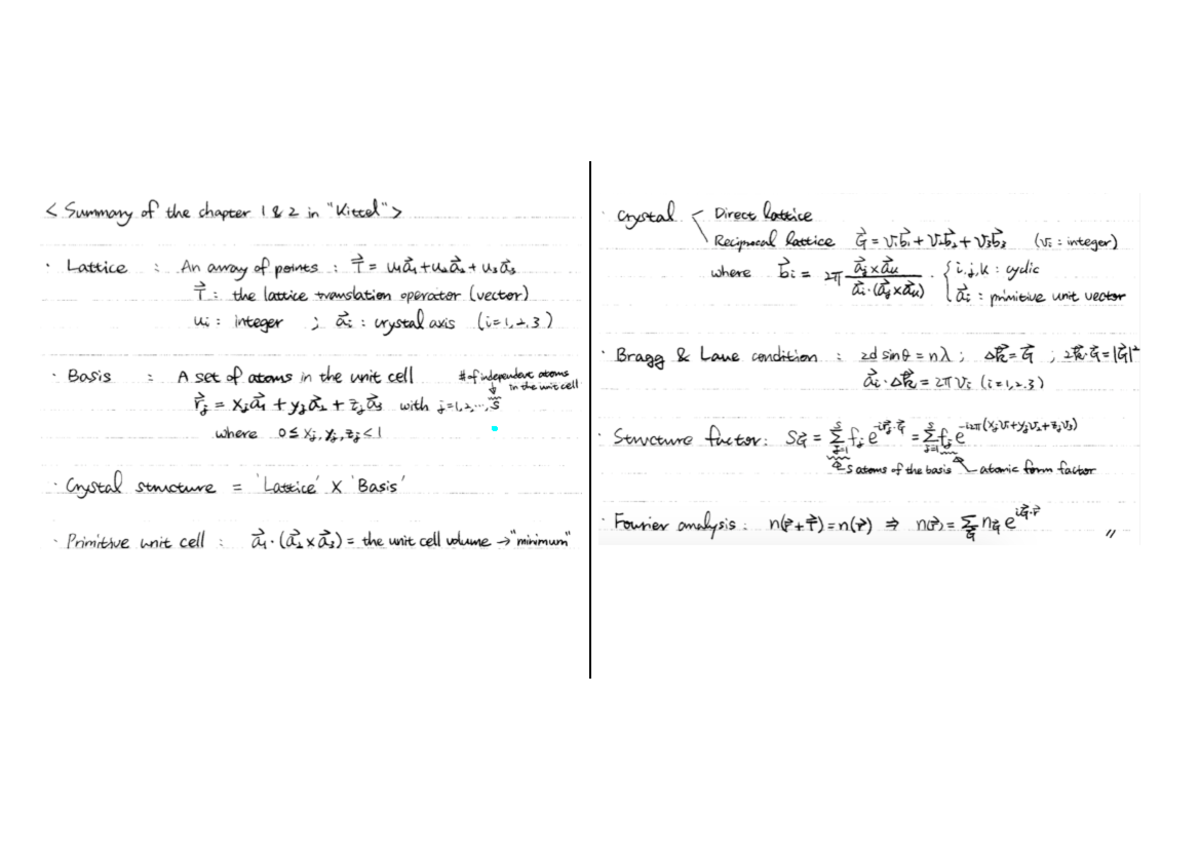 < Summary of the chapter 1 & 2 in "Kittel" >
· Lattice : An array of points : T⃗ = u₁a⃗₁ + u₂a⃗₂ + u₃a⃗₃
T⃗ : the lattice translation operator (vector)
uᵢ : integer ; a⃗ᵢ : crystal axis (i=1,2,3)
· Basis : A set of atoms in the unit cell
# of independent atoms
in the unit cell
r⃗ⱼ = xⱼa⃗₁ + yⱼa⃗₂ + zⱼa⃗₃ with j=1,2,…,s
where 0 ≤ xⱼ, yⱼ, zⱼ < 1
· Crystal structure = 'Lattice' × 'Basis'
· Primitive unit cell : a⃗₁·(a⃗₂×a⃗₃) = the unit cell volume → "minimum"
· Crystal < Direct lattice
Reciprocal lattice G⃗ = v₁b⃗₁ + v₂b⃗₂ + v₃b⃗₃ (vᵢ : integer)
where b⃗ᵢ = 2π (a⃗ⱼ×a⃗ₖ) / (a⃗ᵢ·(a⃗ⱼ×a⃗ₖ)) · { i,j,k : cyclic
a⃗ᵢ : primitive unit vector
· Bragg & Laue condition : 2d sinθ = nλ ; Δk⃗ = G⃗ ; 2k⃗·G⃗ = |G⃗|²
a⃗ᵢ·Δk⃗ = 2πvᵢ (i=1,2,3)
· Structure factor : S_G⃗ = Σ_{j=1}^{s} fⱼ e^{-ir⃗ⱼ·G⃗} = Σ_{j=1}^{s} fⱼ e^{-i2π(xⱼv₁+yⱼv₂+zⱼv₃)}
s atoms of the basis atomic form factor
· Fourier analysis : n(r⃗+T⃗) = n(r⃗) ⇒ n(r⃗) = Σ_G⃗ n_G⃗ e^{iG⃗·r⃗} //